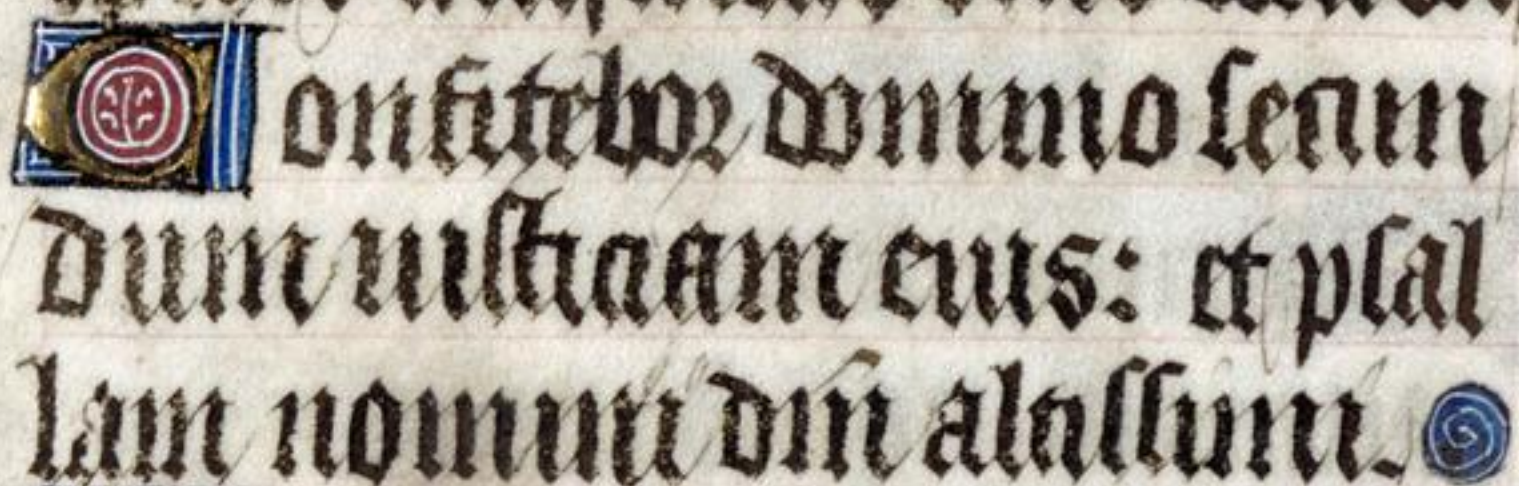 Confitebor domino secun
dum iusticiam eius: et psal
lam nomini dm̄ altissimi.